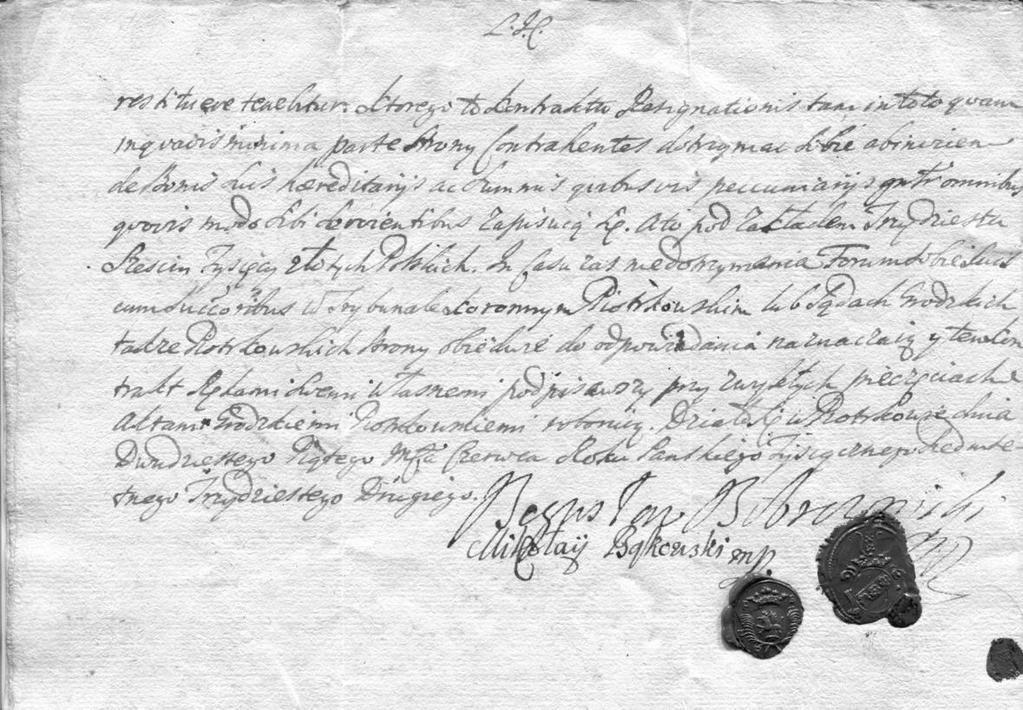 restituere tenebitur. Ktorego to Kontraktu Resignationis tam in toto quam
in quavis minima parte strony Contrahentes dotrzymac sobie ab invicem
de Bonis suis haereditarijs ac summis quibusvis pecuniarijs
quovis modo sibi servientibus zapisuią się. Ato pod zakładem Trzydziestu
Szesciu Tysięcy złotych Polskich. In Casu zas niedotrzymania Forum sobie suis
cum succoribus w Trybunale Koronnym Piotrkowskim lub Sądach Grodzkich
także Piotrkowskich strony obiedwie do odpowiadania naznaczaią y ten Kon
trakt Rękami swemi własnemi podpisawszy przy zwykłych pieczęciach
Aktami Grodzkiemi Piotrkowskiemi roboruią. Działo się w Piotrkowie dnia
Dwudziestego Piątego Mca Czerwca Roku Panskiego Tysiącznego Siedmse
tnego Trzydziestego Drugiego.
Mikołaij Bąkowski mp.